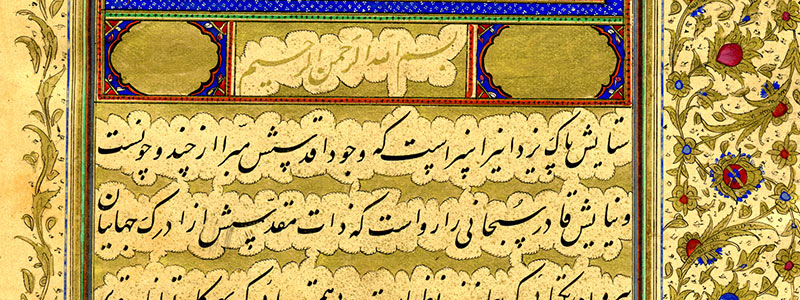 بسم الله الرحمن الرحیم
ستایش پاک یزدانیرا سزاست که وجود اقدسش مبرا از چند و چونست
و نیایش قادر سبحانی را رواست که ذات مقدسش از ادرک جهانیان